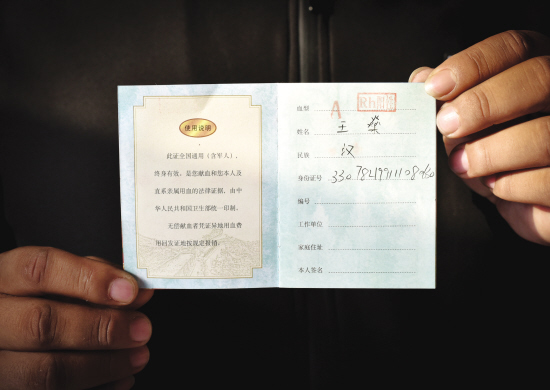 使用说明
此证全国通用（含军人），
终身有效，是您献血和您本人及
直系亲属用血的法律证据，由中
华人民共和国卫生部统一印制。
无偿献血者凭证异地用血费
用回发证地按规定报销。
血型 A
姓名 王燊
民族 汉
身份证号
编号
工作单位
家庭住址
本人签名